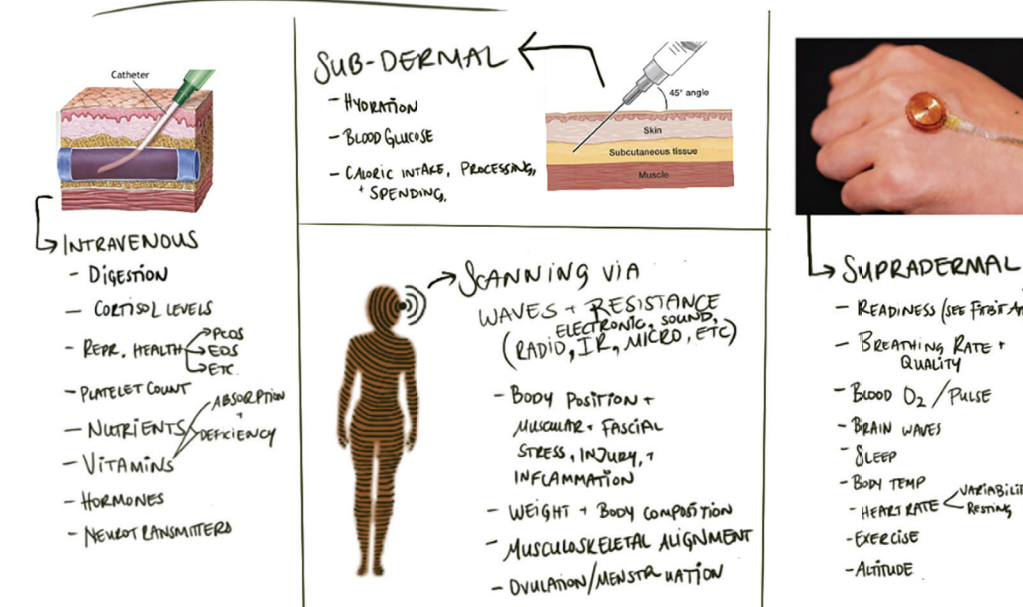 Catheter
INTRAVENOUS
- DIGESTION
- CORTISOL LEVELS
- REPR. HEALTH
PCOS
EDS
ETC.
- PLATELET COUNT
- NUTRIENTS
- VITAMINS
ABSORPTION
+
DEFICIENCY
- HORMONES
- NEUROTRANSMITTERS
SUB-DERMAL
- HYDRATION
- BLOOD GLUCOSE
- CALORIC INTAKE, PROCESSING,
+ SPENDING.
45° angle
Skin
Subcutaneous tissue
Muscle
SCANNING VIA
WAVES + RESISTANCE
ELECTRONIC, SOUND,
(RADIO, IR, MICRO, ETC)
- BODY POSITION +
MUSCULAR + FASCIAL
STRESS, INJURY, +
INFLAMMATION
- WEIGHT + BODY COMPOSITION
- MUSCULOSKELETAL ALIGNMENT
- OVULATION/MENSTRUATION
SUPRADERMAL
- READINESS (SEE FITBIT
- BREATHING RATE +
QUALITY
- BLOOD O2 / PULSE
- BRAIN WAVES
- SLEEP
- BODY TEMP
- HEART RATE
VARIABILI
RESTING
- EXERCISE
- ALTITUDE